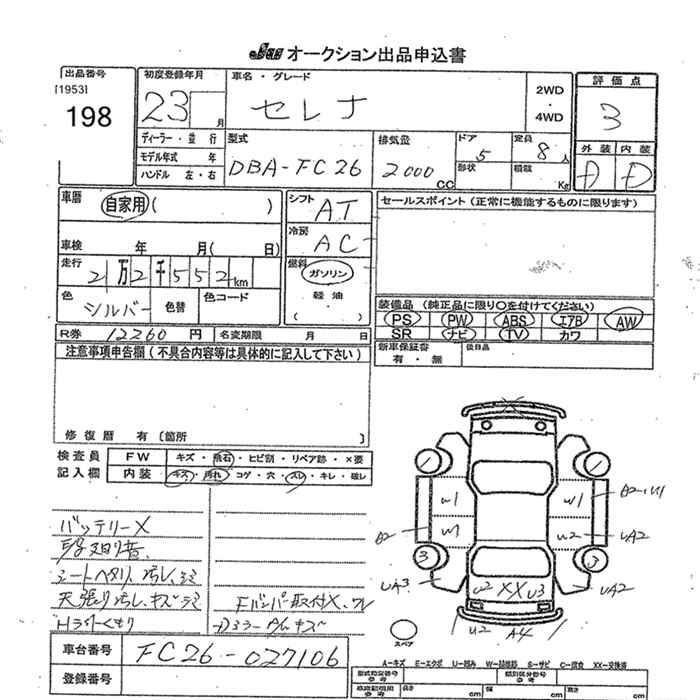 JU オークション出品申込書
出品番号
[1953]
198
初度登録年月
23 月
車名・グレード
セレナ
2WD
・
4WD
評価点
3
外装 内装
A D
ディーラー・並行
モデル年式 年
ハンドル 左・右
型式
DBA-FC26
排気量
2000 CC
ドア
5
形状
定員
8人
積載
Kg
車歴
自家用 ( )
車検 年 月( 日)
走行
2万2千552km
色
シルバー
色替
色コード
シフト
AT
冷房
AC
燃料
ガソリン
軽油
( )
セールスポイント (正常に機能するものに限ります)
装備品 (純正品に限り○を付けてください)
PS PW ABS エアB AW
SR ナビ TV カワ
新車保証書
有・無
後日品
R券 12260 円
名変期限 月 日
注意事項申告欄 (不具合内容等は具体的に記入して下さい)
修復歴 有 〔箇所
検査員
記入欄
FW キズ・飛石・ヒビ割・リペア跡・×要
内装 キズ・汚れ・コゲ・穴・スレ・キレ・破レ
バッテリーX
シートヘタリ、汚レ、シミ
天張り汚レ、キズ、シミ
Hライトくもり
Fバンパー取付X、ワレ
車台番号
FC26-027106
登録番号
W1
W1
W1
W2
UA2
UA3
UA2
U2 XX U3
U2 A4
3
3
スペア
A-キズ E-エクボ U-凹み W-補修跡 S-サビ C-腐食 XX-交換済
型式指定番号
類別区分番号
長さ cm
幅 cm
高さ cm